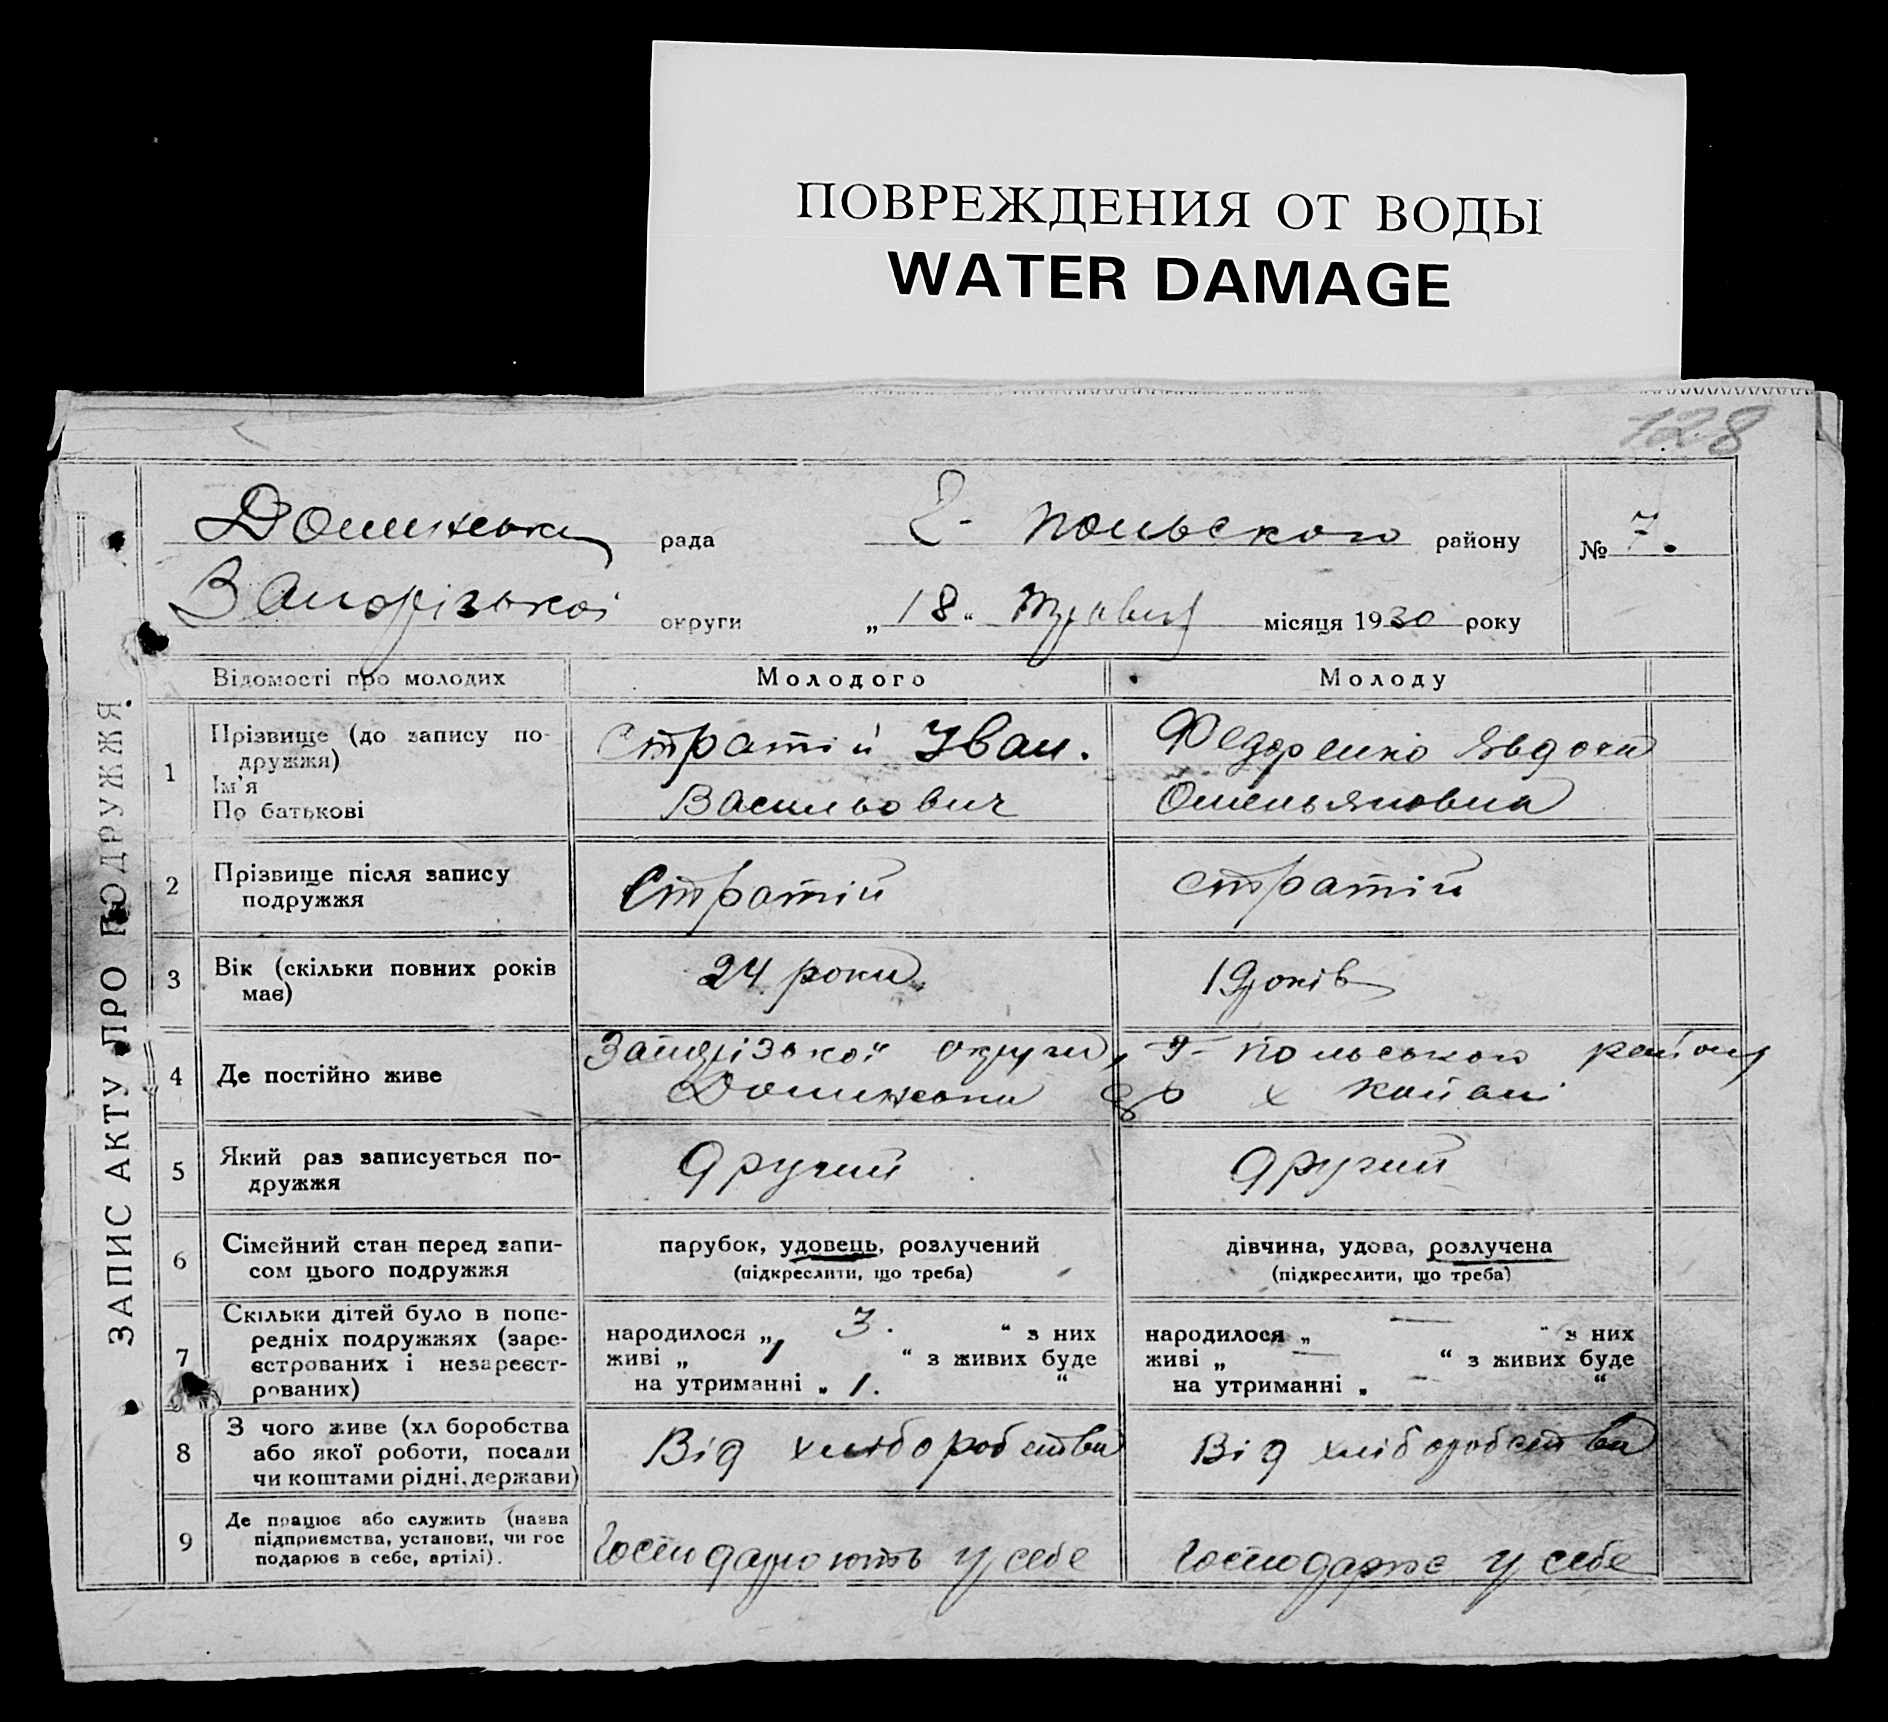 ПОВРЕЖДЕНИЯ ОТ ВОДЫ
WATER DAMAGE
128
рада польского району № 7.
Запорізької округи „18“ Травня місяця 1930 року
ЗАПИС АКТУ ПРО ПОДРУЖЖЯ
Відомості про молодих Молодого Молоду
1 Прізвище (до запису по-
дружжя)
Ім'я
По батькові
Стратій Іван. Федоренко Явдоха
Васильович Омельяновна
2 Прізвище після запису
подружжя
Стратій стратій
3 Вік (скільки повних років
має)
24 роки 19 років
4 Де постійно живе
Запорізької округи, Г- польського району
х Копані
5 Який раз записується по-
дружжя
другий другий
6 Сімейний стан перед запи-
сом цього подружжя
парубок, удовець, розлучений дівчина, удова, розлучена
(підкреслити, що треба) (підкреслити, що треба)
7 Скільки дітей було в попе-
редніх подружжях (заре-
єстрованих і незареєст-
рованих)
народилося „ 3. “ з них народилося „ — “ з них
живі „ 1 “ з живих буде живі „ — “ з живих буде
на утриманні „ 1. “ на утриманні „ - “
8 З чого живе (хл боробства
або якої роботи, посади
чи коштами рідні, держави)
Від хліборобства Від хліборобства
9 Де працює або служить (назва
підприємства, установи, чи гос
подарює в себе, артілі).
Господарюють у себе Господарює у себе